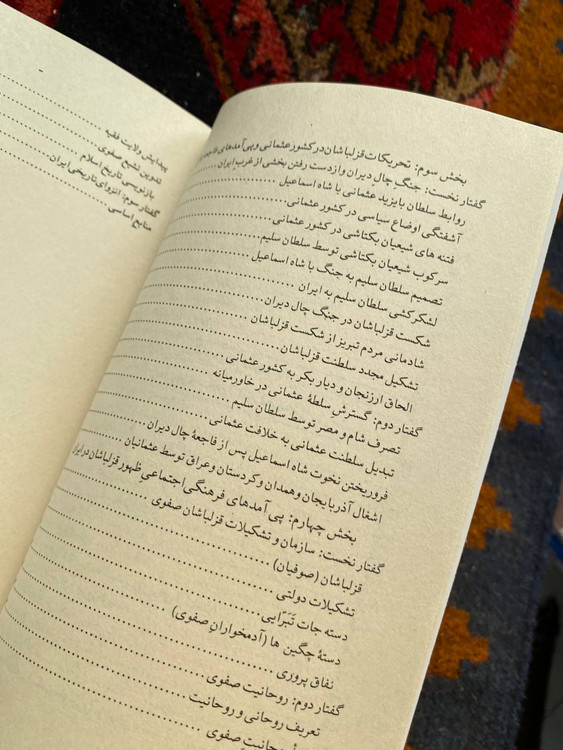 بخش سوم: تحریکات قزلباشان در کشور عثمانی و پی‌آمدهای
گفتار نخست: جنگ چال دیران و ازدست رفتن بخشی از غرب ایران
روابط سلطان بایزید عثمانی با شاه اسماعیل
آشفتگی اوضاع سیاسی در کشور عثمانی
فتنه های شیعیان بکتاشی در کشور عثمانی
سرکوب شیعیان بکتاشی توسط سلطان سلیم
تصمیم سلطان سلیم به جنگ با شاه اسماعیل
لشکرکشی سلطان سلیم به ایران
شکست قزلباشان در جنگ چال دیران
شادمانی مردم تبریز از شکست قزلباشان
تشکیل مجدد سلطنت قزلباشان
الحاق ارزنجان و دیار بکر به کشور عثمانی
گفتار دوم: گسترش سلطهٔ عثمانی در خاورمیانه
تصرف شام و مصر توسط سلطان سلیم
تبدیل سلطنت عثمانی به خلافت عثمانی
فروریختن نخوت شاه اسماعیل پس از فاجعهٔ چال دیران
اشغال آذربایجان و همدان و کردستان و عراق توسط عثمانیان
بخش چهارم: پی آمدهای فرهنگی اجتماعی ظهور قزلباشان در ایران
گفتار نخست: سازمان و تشکیلات قزلباشان صفوی
قزلباشان (صوفیان)
تشکیلات دولتی
دسته جات تَبَرّایی
دستهٔ چگین ها (آدمخوارانِ صفوی)
نفاق پروری
گفتار دوم: روحانیت صفوی
تعریف روحانی و روحانیت
روحانیت صفوی
پیدایش ولایت فقیه
تدوین تشیع صفوی
بازنویسی تاریخ اسلام
گفتار سوم: انزوای تاریخی ایران
منابع اساسی